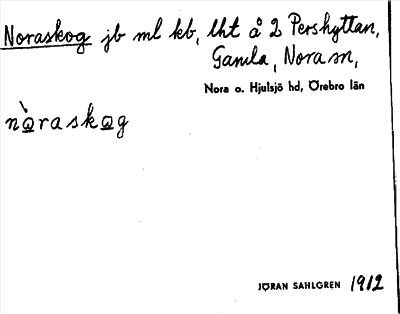 Noraskog jb ml kb, lht å 2 Pershyttan,
Gamla, Nora sn,
Nora o. Hjulsjö hd, Örebro län
nò̲rasko̲g
JÖRAN SAHLGREN 1912